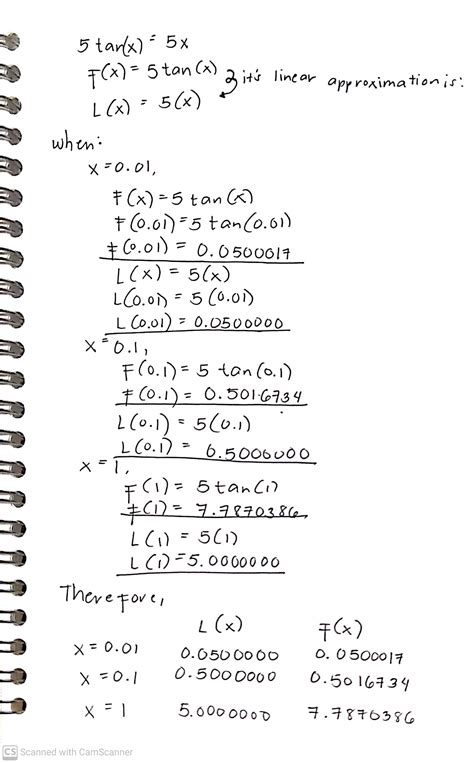 5 tan(x) = 5x
F(x) = 5 tan(x) } it's linear approximation is:
L(x) = 5(x)
when:
x = 0.01,
F(x) = 5 tan(x)
F(0.01) = 5 tan(0.01)
F(0.01) = 0.0500017
L(x) = 5(x)
L(0.01) = 5(0.01)
L(0.01) = 0.0500000
x = 0.1,
F(0.1) = 5 tan(0.1)
F(0.1) = 0.5016734
L(0.1) = 5(0.1)
L(0.1) = 0.5000000
x = 1,
F(1) = 5 tan(1)
F(1) = 7.7870386
L(1) = 5(1)
L(1) = 5.0000000
Therefore,
L(x) F(x)
x = 0.01 0.0500000 0.0500017
x = 0.1 0.5000000 0.5016734
x = 1 5.0000000 7.7870386
CS Scanned with CamScanner